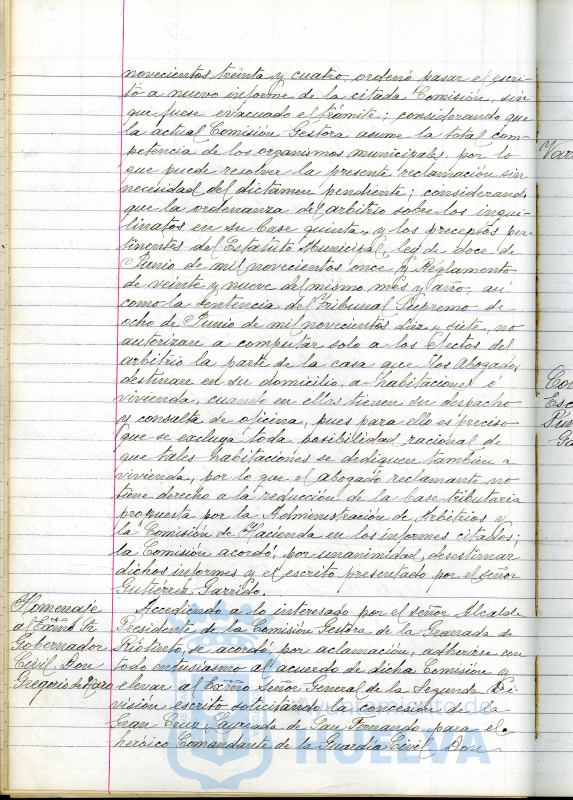 novecientos treinta y cuatro, ordenó pasar el escri-
to a nuevo informe de la citada Comisión, sin
que fuese evacuado el trámite; considerando que
la actual Comisión Gestora asume la total com-
petencia de los organismos municipales, por lo
que puede resolver la presente reclamación sin
necesidad del dictamen pendiente; considerando
que la ordenanza del arbitrio sobre los inqui-
linatos en su base quinta, y los preceptos per-
tinentes del Estatuto Municipal, ley de doce de
Junio de mil novecientos once y Reglamento
de veinte y nueve del mismo mes y año, así
como la sentencia del Tribunal Supremo de
ocho de Junio de mil novecientos diez y siete, no
autorizan a computar solo a los efectos del
arbitrio la parte de la casa que los Abogados
destinan en su domicilio, a habitaciones o
vivienda, cuando en ellas tienen su despacho
y consulta de oficina, pues para ello es preciso
que se excluya toda posibilidad racional de
que tales habitaciones se dediquen también a
vivienda, por lo que el abogado reclamante no
tiene derecho a la reducción de la base tributaria
propuesta por la Administración de Arbitrios y
la Comisión de Hacienda en los informes citados;
la Comisión acordó, por unanimidad, desestimar
dichos informes y el escrito presentado por el señor
Gutiérrez Garrido.
Homenaje
al Exmo Sr
Gobernador
Civil Don
Gregorio de Haro
Accediendo a lo interesado por el señor Alcalde
Presidente de la Comisión Gestora de la Granada de
Riotinto, se acordó, por aclamación, adherirse con
todo entusiasmo al acuerdo de dicha Comisión y
elevar al Exmo Señor General de la Segunda Di-
visión escrito solicitando la concesión de la
Gran Cruz Laureada de San Fernando para el
heróico Comandante de la Guardia Civil Don
HUELVA